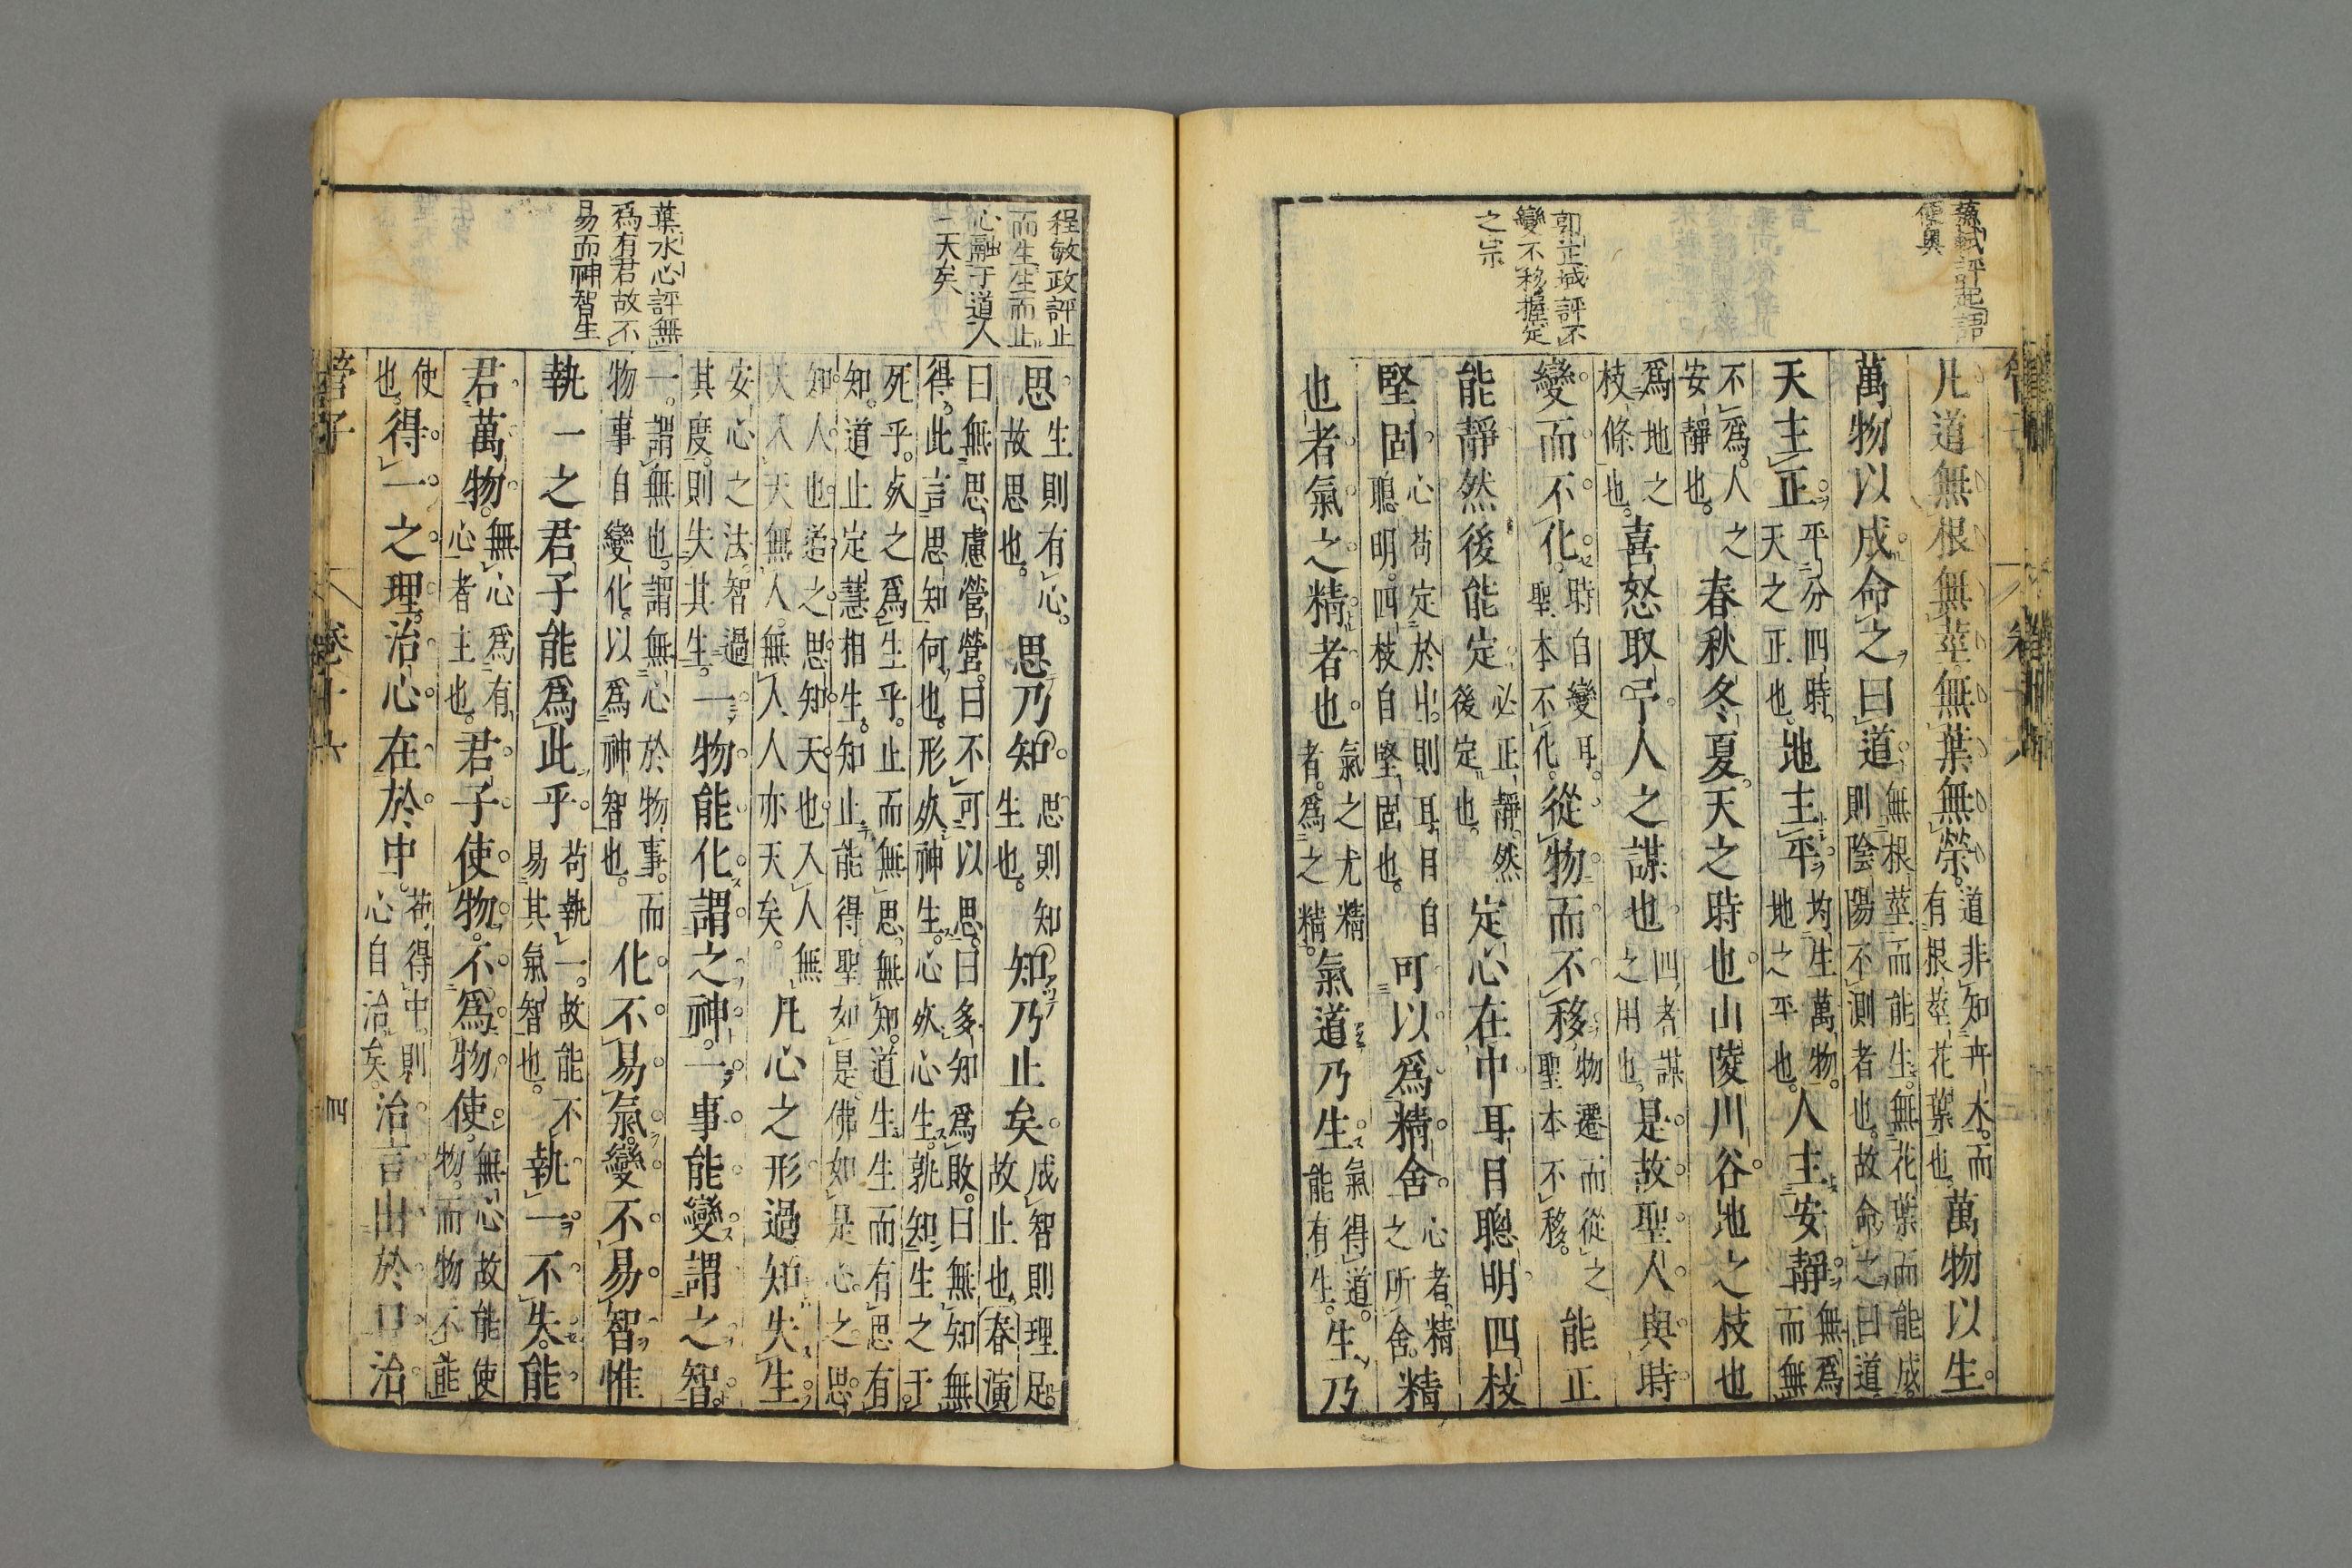 蘇軾評起語
便奧
郭正域評不
變不移握定
之宗
凡道無根無莖無葉無榮道非知卉木而有根莖花葉也萬物以生
萬物以成命之曰道無根莖而能生無花葉而能成則陰陽不測者也故命之曰道
天主正平分四時天之正也地主平均生萬物地之平也人主安靜無為而無
不為人之安靜也春秋冬夏天之時也山陵川谷地之枝也
為地之枝條也喜怒取予人之謀也四者謀之用也是故聖人與時
變而不化時自變耳聖本不化從物而不移物遷而從之聖本不移能正
能靜然後能定必正靜然後定也定心在中耳目聰明四枝
堅固心苟定於中則耳目自聰明四枝自堅固也可以為精舍心者精之所舍精
也者氣之精者也氣之尤精者為之精氣道乃生氣得道能有生生乃
管子
卷十六
程敏政評止
而生生而止
心融于道人
一天矣
葉水心評無
為有君故不
易而神智生
思生則有心故思也思乃知思則知生也知乃止矣成智則理足故止也春演
曰無思慮營營曰不可以思曰多知為敗曰無知無
得此言思知何也形次神生心次心生孰知生之于
死乎次之為生乎止而無思無知道生生而有思有
知道止定慧相生知止能得聖如是佛如是心之思
知人也造之思知天也入人無
天入天無人無人人亦天矣凡心之形過知失生
安心之法智過其度則失其生一物能化謂之神一事能變謂之智
一謂無也謂無心於物事而物事自變化以為神智也化不易氣變不易智惟
執一之君子能為此乎苟執一故能不易其氣智也執一不失能
君萬物無心為有心者主也君子使物不為物使無心故能使物而物不能
使也得一之理治心在於中苟得中則心自治矣治言出於口治
管子
卷十六
四